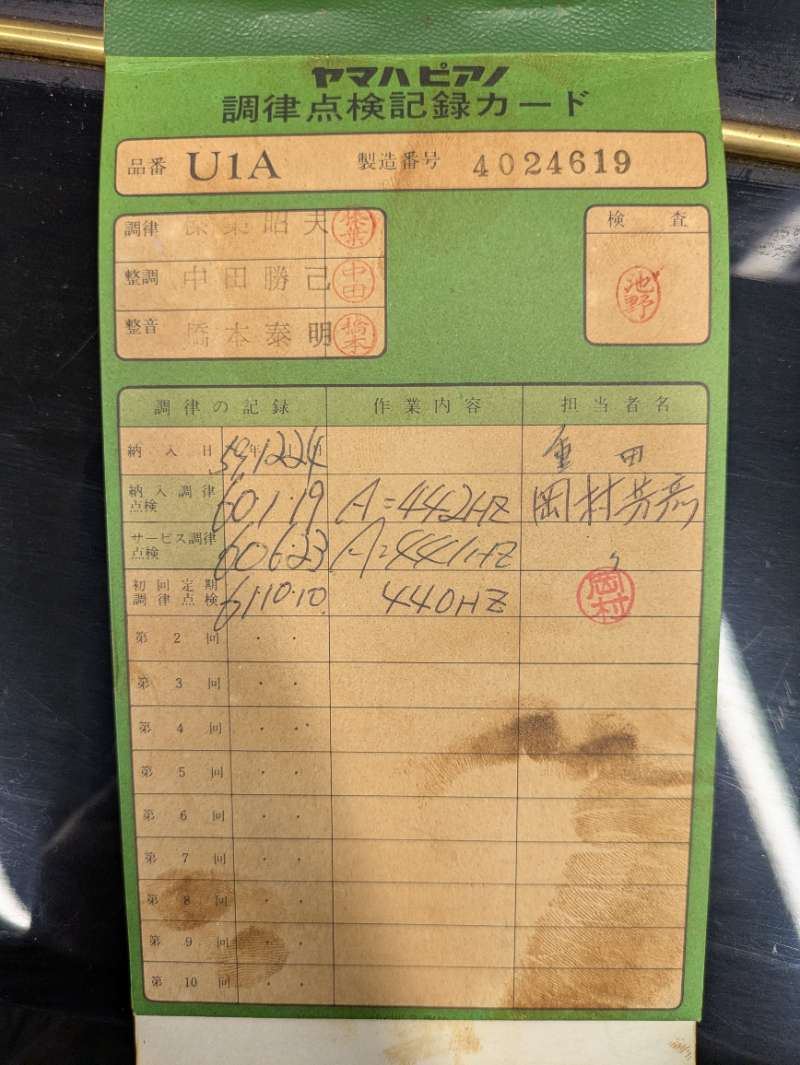 ヤマハピアノ
調律点検記録カード
品番 U1A 製造番号 4024619
調律 昭夫
検査
整調 中田勝己 中田
池野
整音 橋本泰明 橋本
調律の記録 作業内容 担当者名
納入日 59.12.24 重田
納入調律点検 60.1.19 A=442HZ 岡村芳彦
サービス調律点検 60.6.23 A=441HZ 〃
初回定期調律点検 61.10.10. 440HZ 岡村
第2回 ・ ・
第3回 ・ ・
第4回 ・ ・
第5回 ・ ・
第6回 ・ ・
第7回 ・ ・
第8回 ・ ・
第9回 ・ ・
第10回 ・ ・